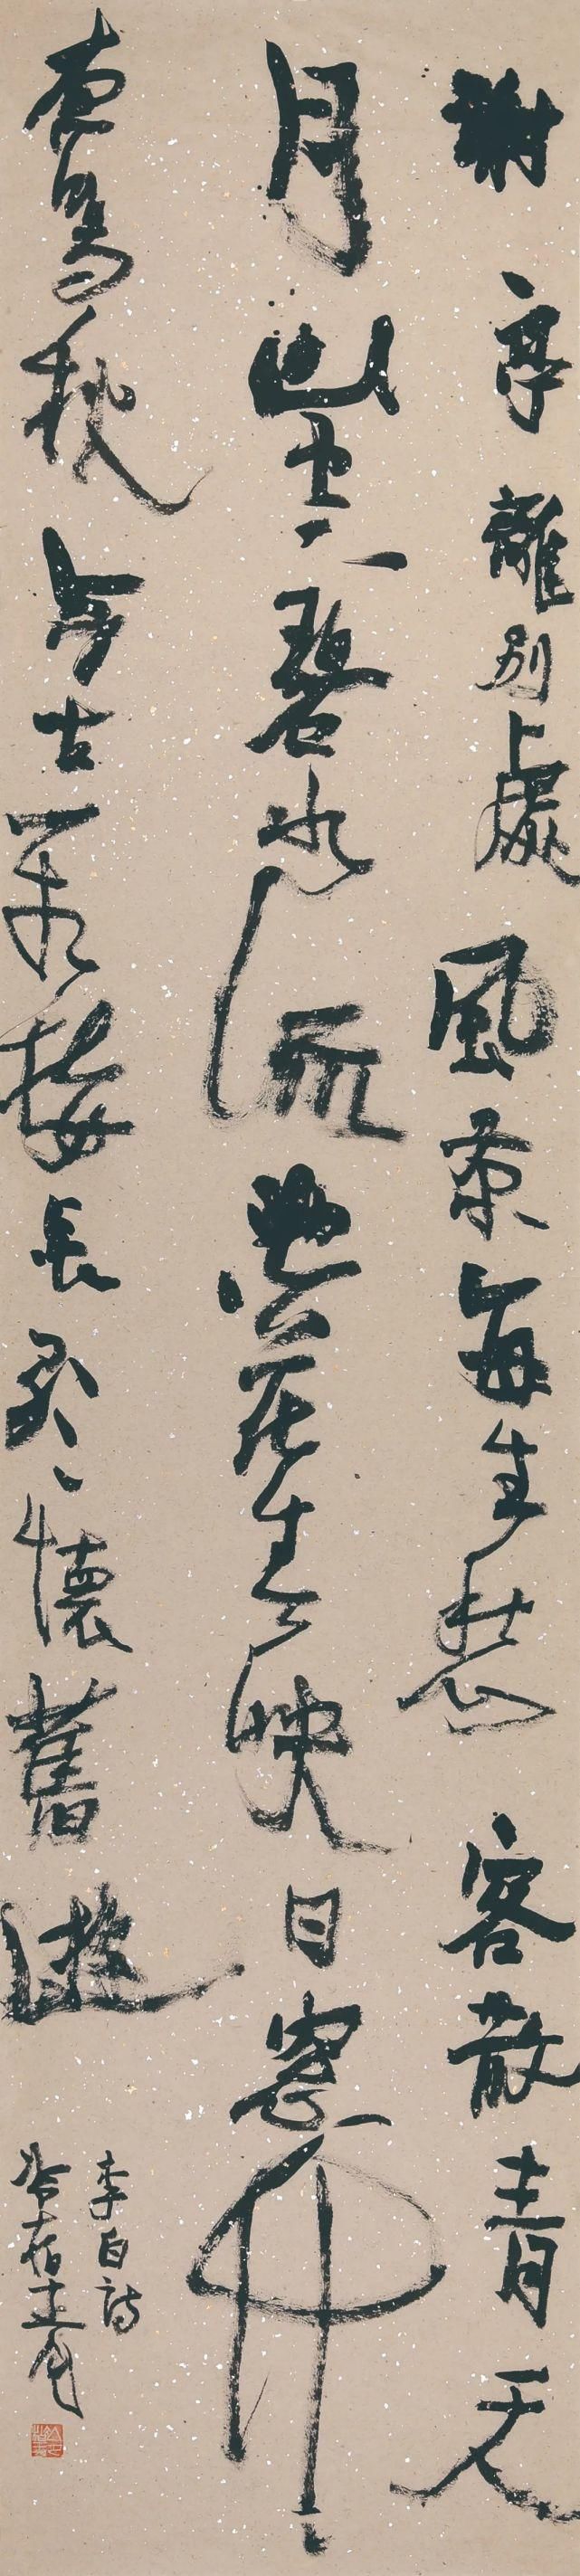 謝亭離別處風景每生愁客散青天
月山空碧水流池花春映日窓竹
夜鳴秋今古一相接長歌懷舊遊
李白詩